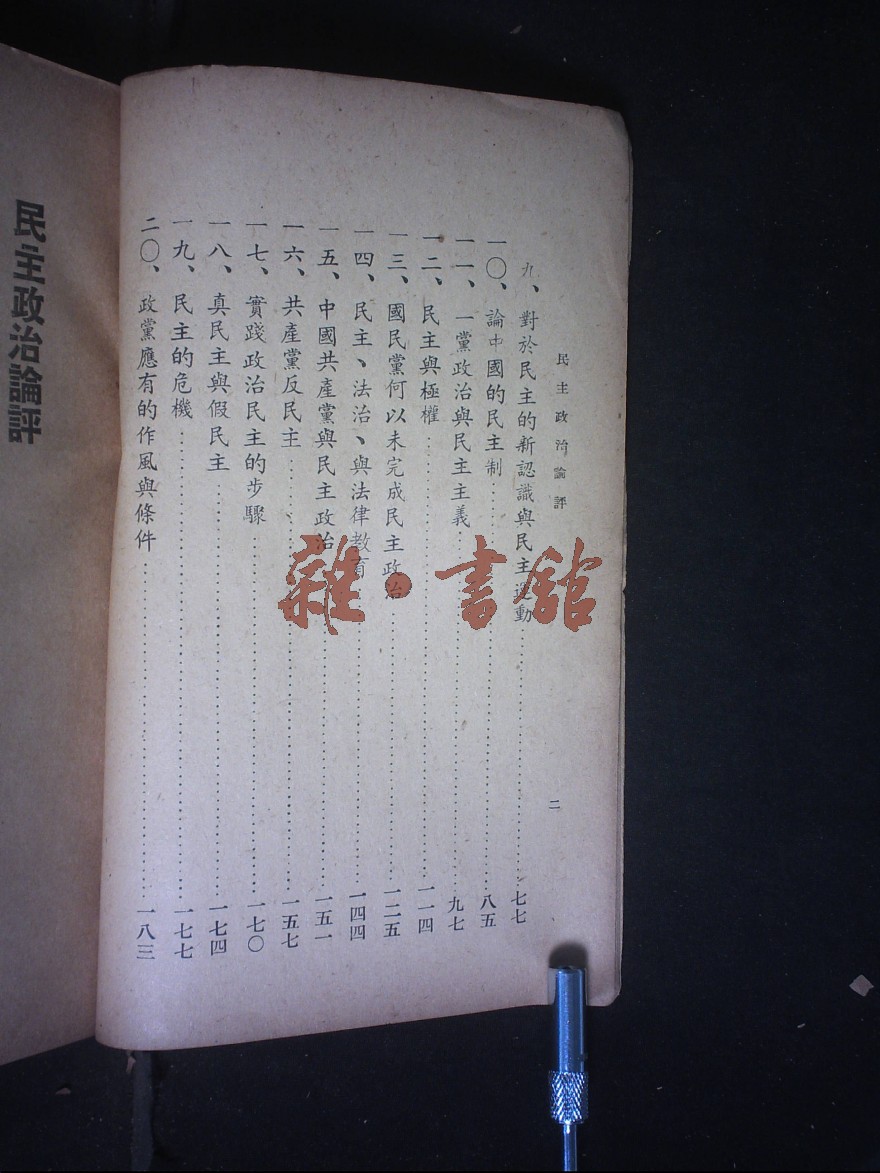 民主政治論評
二
九、對於民主的新認識與民主運動……七七
一〇、論中國的民主制……八五
一一、一黨政治與民主主義……九七
一二、民主與極權……一一四
一三、國民黨何以未完成民主政治……一二五
一四、民主、法治、與法律教育……一四四
一五、中國共產黨與民主政治……一五一
一六、共產黨反民主……一五七
一七、實踐政治民主的步驟……一七〇
一八、真民主與假民主……一七四
一九、民主的危機……一七七
二〇、政黨應有的作風與條件……一八三
民主政治論評
雜·書館